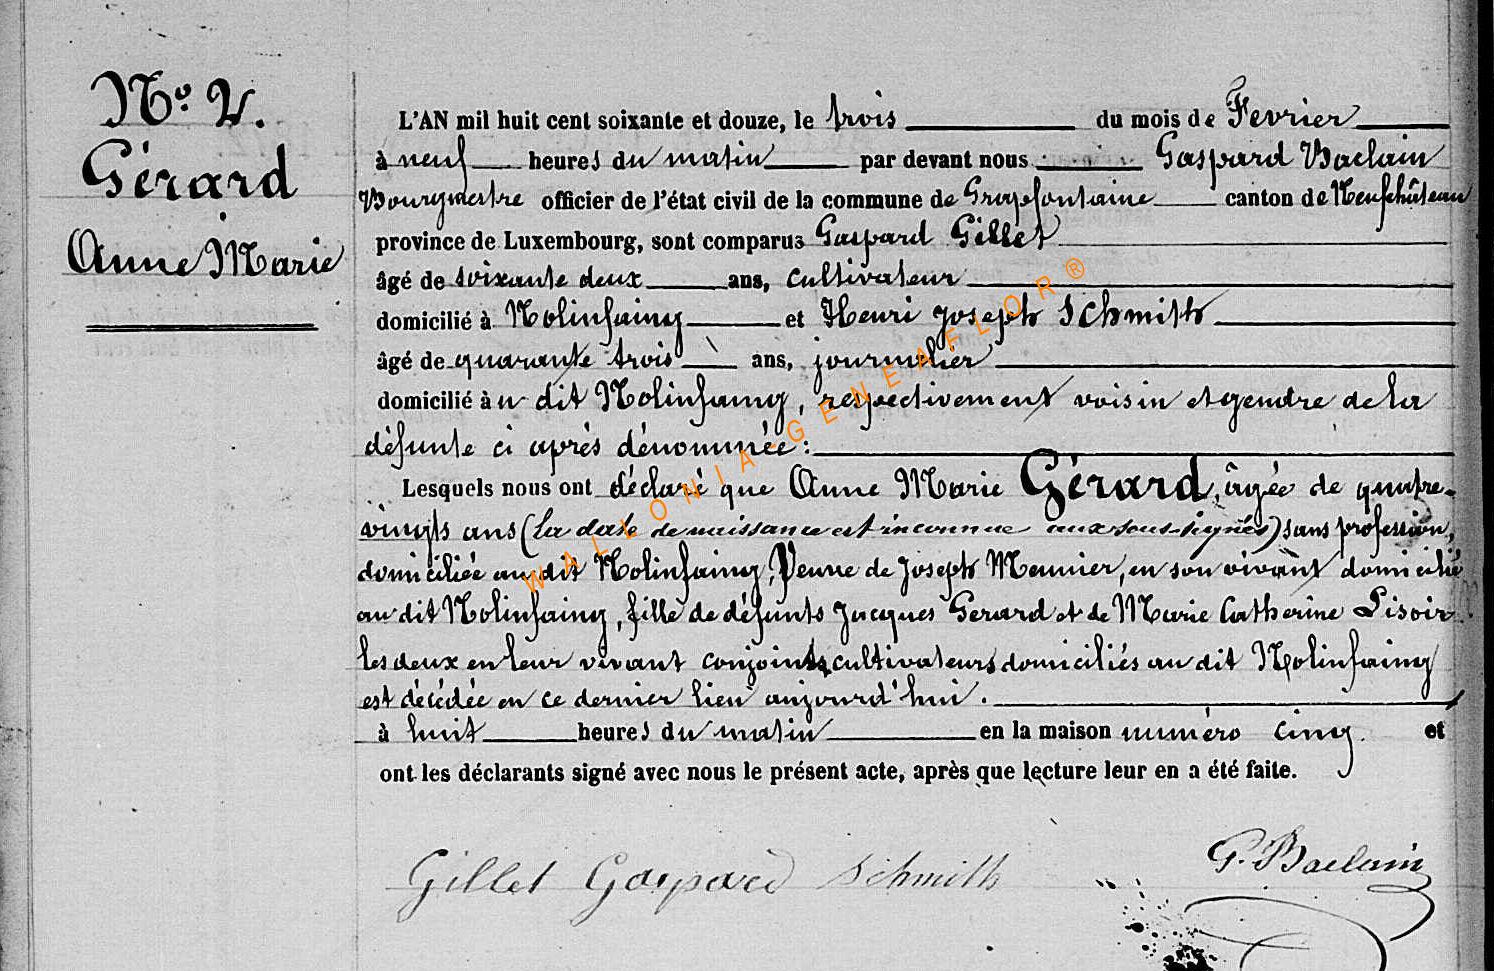 No. 2.
Gérard
Anne Marie
L'AN mil huit cent soixante et douze, le trois du mois de Fevrier
à neuf heures du matin par devant nous Gaspard Baclain
Bourgmestre officier de l'état civil de la commune de Grapfontaine canton de Neufchâteau
province de Luxembourg, sont comparus Gaspard Gillet
âgé de soixante deux ans, cultivateur
domicilié à Nolinfaing et Henri Joseph Schmith
âgé de quarante trois ans, journalier
domicilié à u dit Nolinfaing, respectivement voisin et gendre de la
défunte ci après dénommée :
Lesquels nous ont déclaré que Anne Marie Gérard, âgée de quatre-
vingts ans (la date de naissance est inconnue aux sous-signés) sans profession,
domiciliée au dit Nolinfaing, Veuve de Joseph Meunier, en son vivant domicilié
au dit Nolinfaing, fille de défunts Jacques Gerard et de Marie Catherine Lisoir
les deux en leur vivant conjoints cultivateurs domiciliés au dit Nolinfaing
est décédée en ce dernier lieu aujourd'hui.
à huit heures du matin en la maison numéro cinq. et
ont les déclarants signé avec nous le présent acte, après que lecture leur en a été faite.
Gillet Gaspard Schmith G. Baclain
WALLONIA-GENEAFLOR®